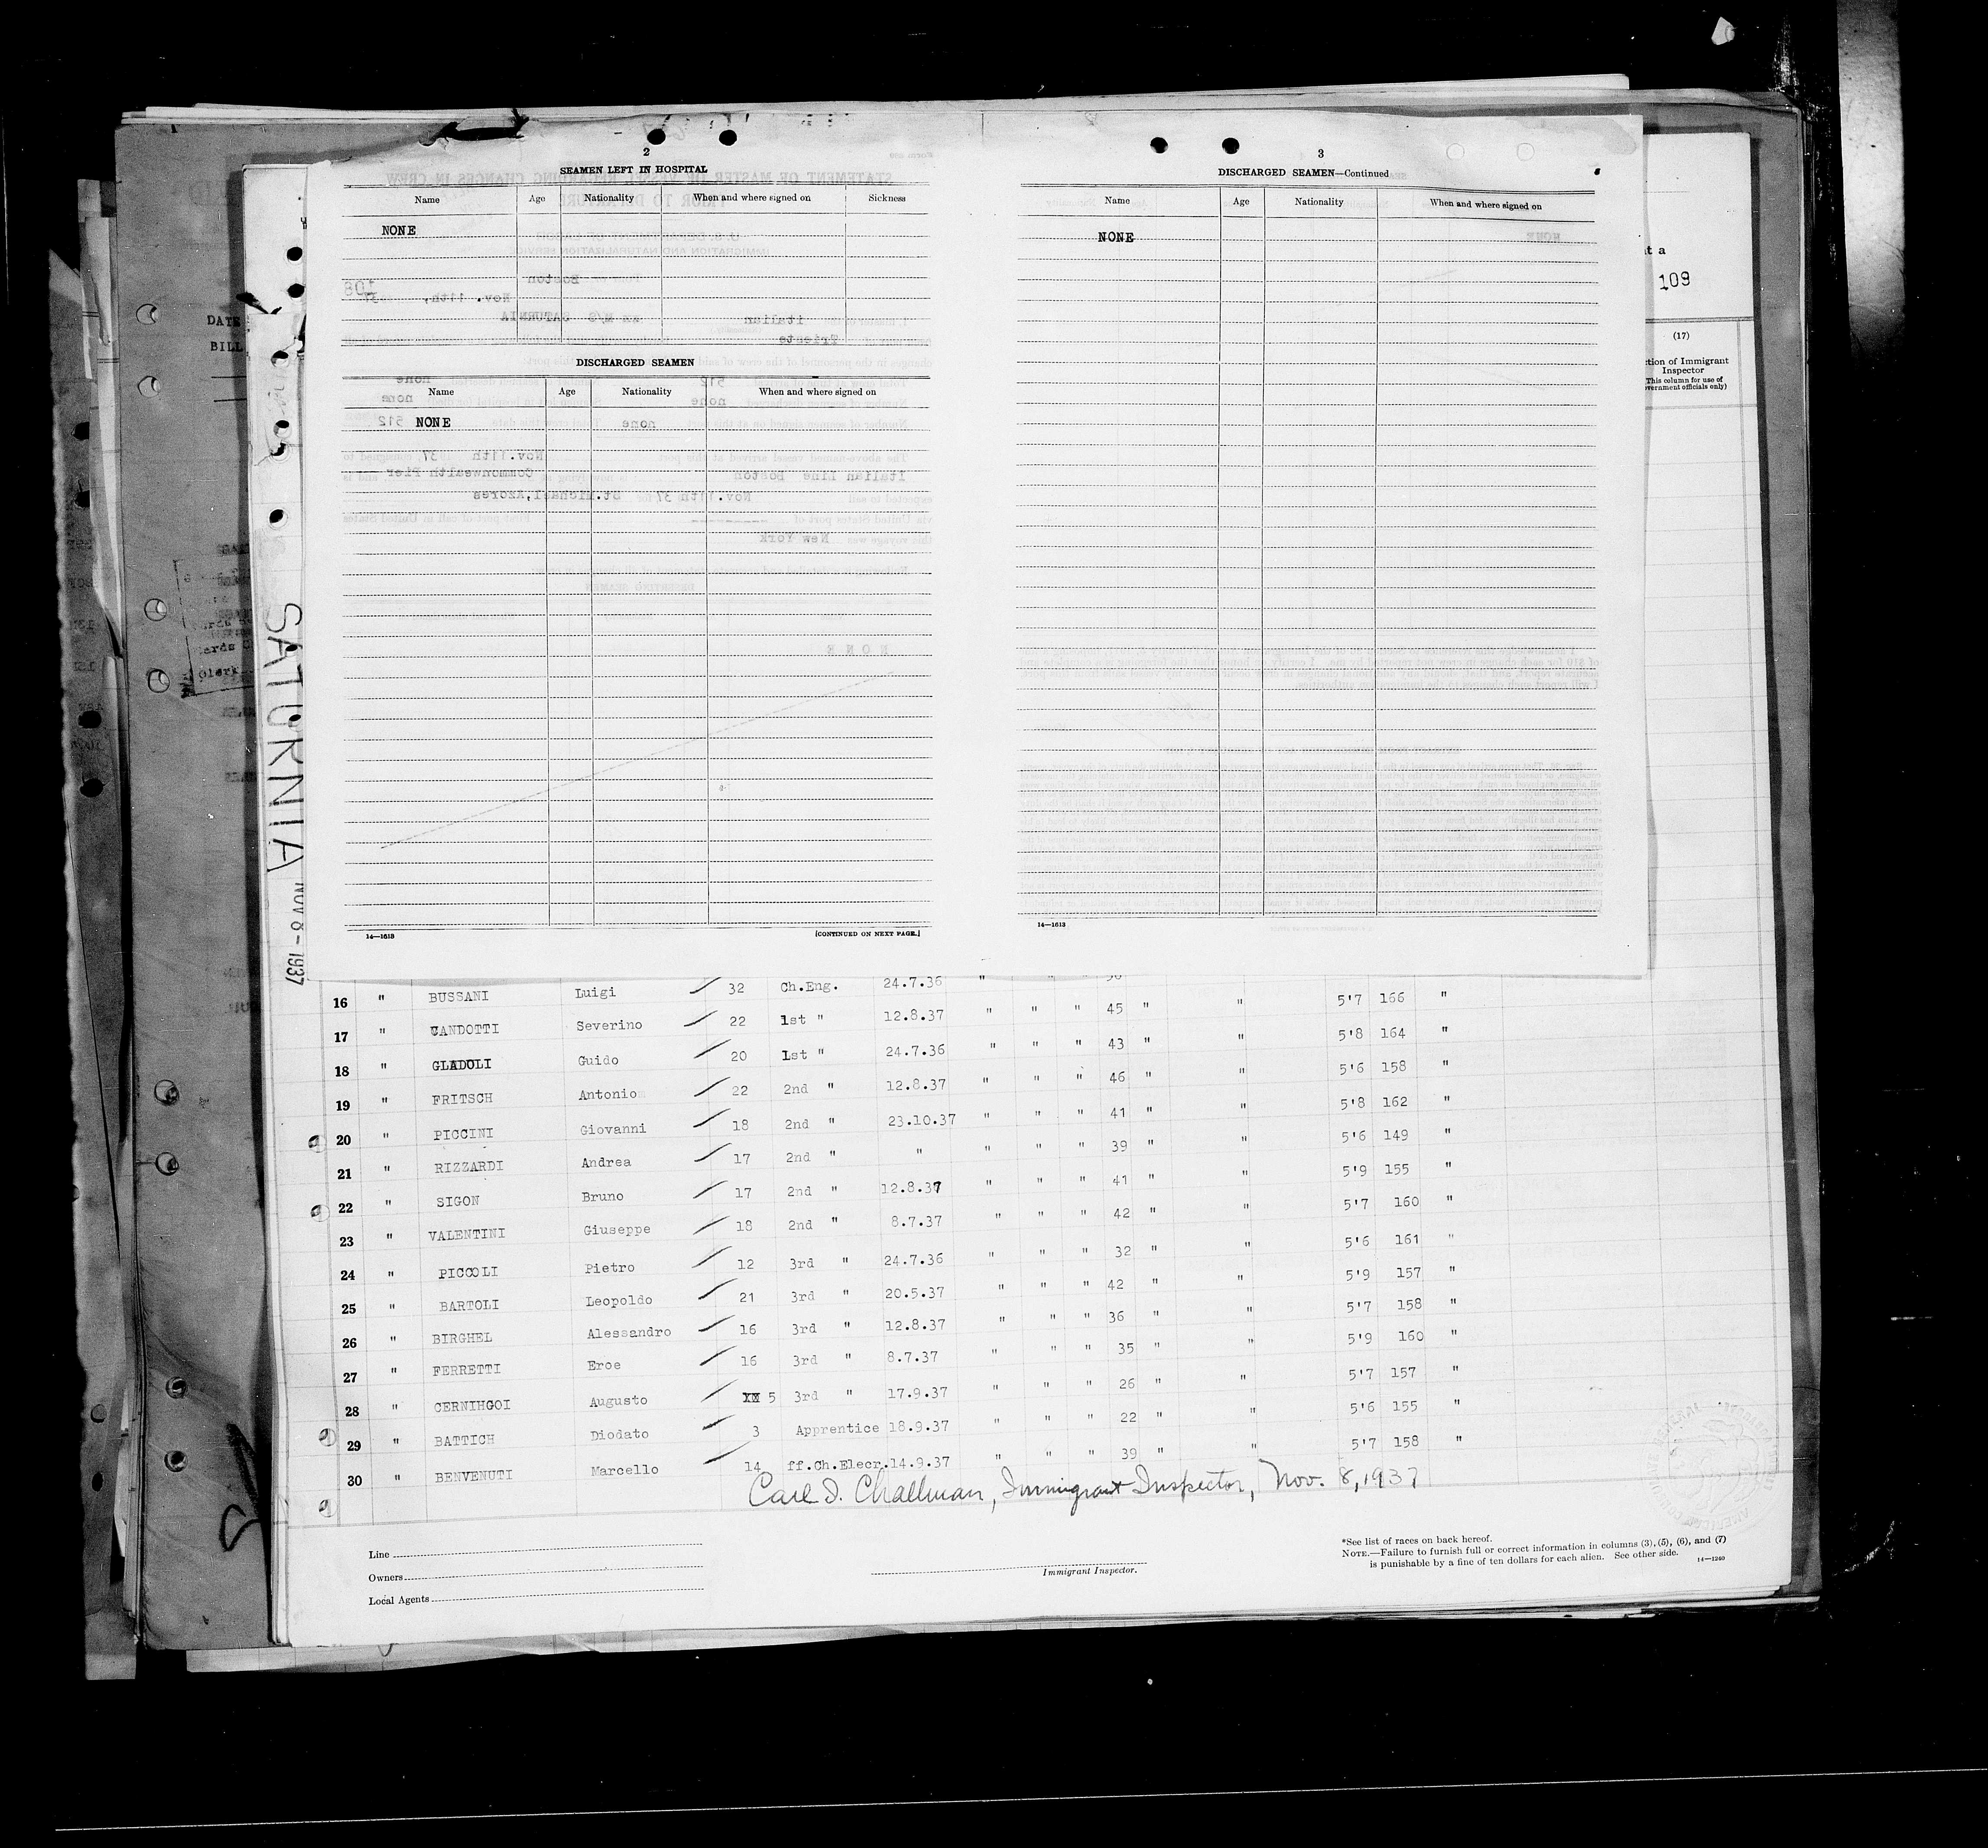 2
SEAMEN LEFT IN HOSPITAL
Name Age Nationality When and where signed on Sickness
NONE
DISCHARGED SEAMEN
Name Age Nationality When and where signed on
NONE
14—1613 [CONTINUED ON NEXT PAGE.]
3
DISCHARGED SEAMEN—Continued
Name Age Nationality When and where signed on
NONE
14—1613
109
(17)
Inspector
DATE
BILL
SATURNIA
NOV 8 - 1937
16 " BUSSANI Luigi 32 Ch.Eng. 24.7.36 " " " 5'7 166 "
17 " CANDOTTI Severino 22 1st " 12.8.37 " " " 45 " " 5'8 164 "
18 " GLADOLI Guido 20 1st " 24.7.36 " " " 43 " " 5'6 158 "
19 " FRITSCH Antonio 22 2nd " 12.8.37 " " " 46 " " 5'8 162 "
20 " PICCINI Giovanni 18 2nd " 23.10.37 " " " 41 " " 5'6 149 "
21 " RIZZARDI Andrea 17 2nd " " " " " 39 " " 5'9 155 "
22 " SIGON Bruno 17 2nd " 12.8.37 " " " 41 " " 5'7 160 "
23 " VALENTINI Giuseppe 18 2nd " 8.7.37 " " " 42 " " 5'6 161 "
24 " PICCOLI Pietro 12 3rd " 24.7.36 " " " 32 " " 5'9 157 "
25 " BARTOLI Leopoldo 21 3rd " 20.5.37 " " " 42 " " 5'7 158 "
26 " BIRGHEL Alessandro 16 3rd " 12.8.37 " " " 36 " " 5'9 160 "
27 " FERRETTI Eroe 16 3rd " 8.7.37 " " " 35 " " 5'7 157 "
28 " CERNIHGOI Augusto 5 3rd " 17.9.37 " " " 26 " " 5'6 155 "
29 " BATTICH Diodato 3 Apprentice 18.9.37 " " " 22 " " 5'7 158 "
30 " BENVENUTI Marcello 14 ff.Ch.Elecr. 14.9.37 " " " 39 " "
Carl D. Challman, Immigrant Inspector, Nov. 8, 1937
Line
Owners
Local Agents
Immigrant Inspector.
*See list of races on back hereof.
NOTE.—Failure to furnish full or correct information in columns (3), (5), (6), and (7)
is punishable by a fine of ten dollars for each alien. See other side. 14—1240